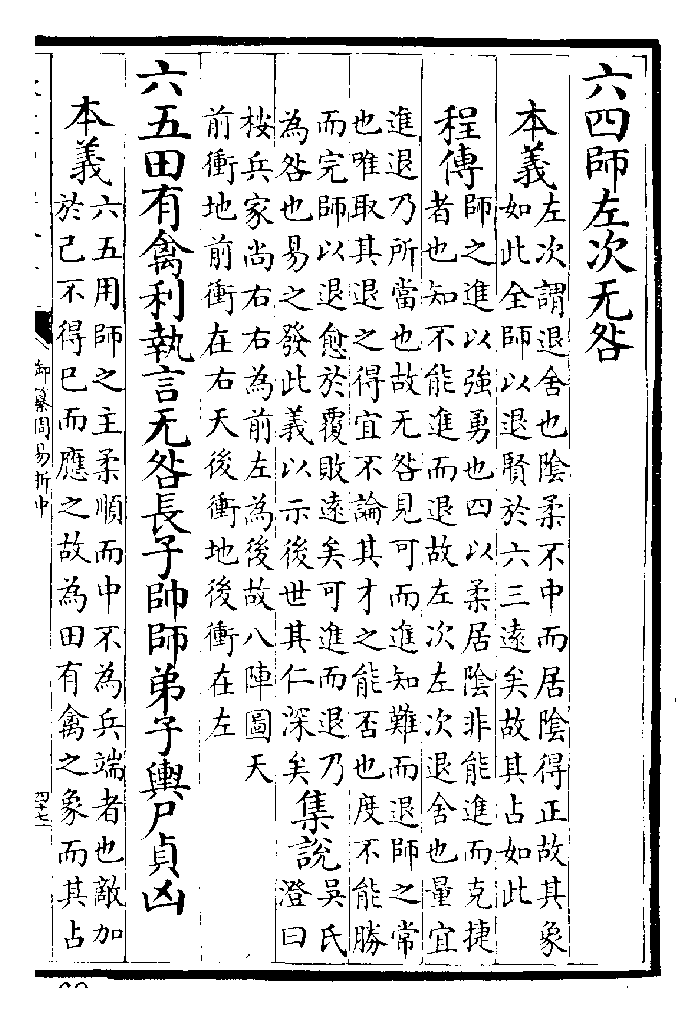 六四師左次无咎
本義
左次謂退舍也陰柔不中而居陰得正故其象
如此全師以退賢於六三遠矣故其占如此
程傳
師之進以強勇也四以柔居陰非能進而克捷
者也知不能進而退故左次左次退舍也量宜
進退乃所當也故无咎見可而進知難而退師之常
也唯取其退之得宜不論其才之能否也度不能勝
而完師以退愈於覆敗遠矣可進而退乃
為咎也易之發此義以示後世其仁深矣
集說
吳氏
澄曰
桉兵家尚右右為前左為後故八陣圖天
前衝地前衝在右天後衝地後衝在左
六五田有禽利執言无咎長子帥師弟子輿尸貞凶
本義
六五用師之主柔順而中不為兵端者也敵加
於己不得已而應之故為田有禽之象而其占
御纂周易折中
四十七